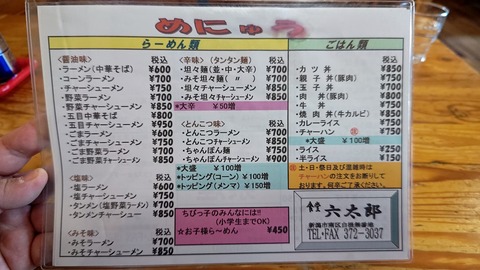 めにゅう
らーめん類
<醤油味> 税込
・ラーメン(中華そば) ¥600
・コーンラーメン ¥700
・チャーシューメン ¥750
・野菜ラーメン ¥700
・野菜チャーシューメン ¥850
・五目中華そば ¥800
・五目チャーシューメン ¥950
・ごまラーメン ¥600
・ごまチャーシューメン ¥750
・ごま野菜ラーメン ¥700
・ごま野菜チャーシューメン ¥850
<塩味> 税込
・塩ラーメン ¥600
・塩チャーシューメン ¥750
・タンメン(塩野菜ラーメン) ¥700
・タンメンチャーシュー ¥850
<みそ味> 税込
・みそラーメン ¥700
・みそチャーシューメン ¥850
<辛味>(タンタン麺) 税込
・坦々麺(並・中・大辛) ¥700
・みそ坦々麺( 〃 ) ¥700
・坦々チャーシューメン ¥850
・みそ坦々チャーシューメン ¥850
*大辛 ¥50増
<とんこつ味> 税込
・とんこつラーメン ¥700
・とんこつチャーシューメン ¥850
・ちゃんぽん ¥750
・ちゃんぽんチャーシューメン ¥900
*大盛 ¥100増
*トッピング(コーン) ¥100増
*トッピング(メンマ) ¥150増
ちびっ子のみんなには!!
(小学生までOK)
☆お子様ら~めん ¥450
ごはん類
税込
・カツ丼 ¥850
・親子丼(豚肉) ¥750
・玉子丼 ¥700
・肉丼(豚肉) ¥800
・牛丼 ¥750
・焼肉丼(牛カルビ) ¥850
・カレーライス ¥750
・チャーハン ¥700
*大盛 ¥100増
・ライス ¥250
・半ライス ¥150
土・日・祭日及び混雑時は
チャーハンの注文をお断りして
おります。何卒ご了承ください。
食堂 六太郎
TEL・FAX 372-3037